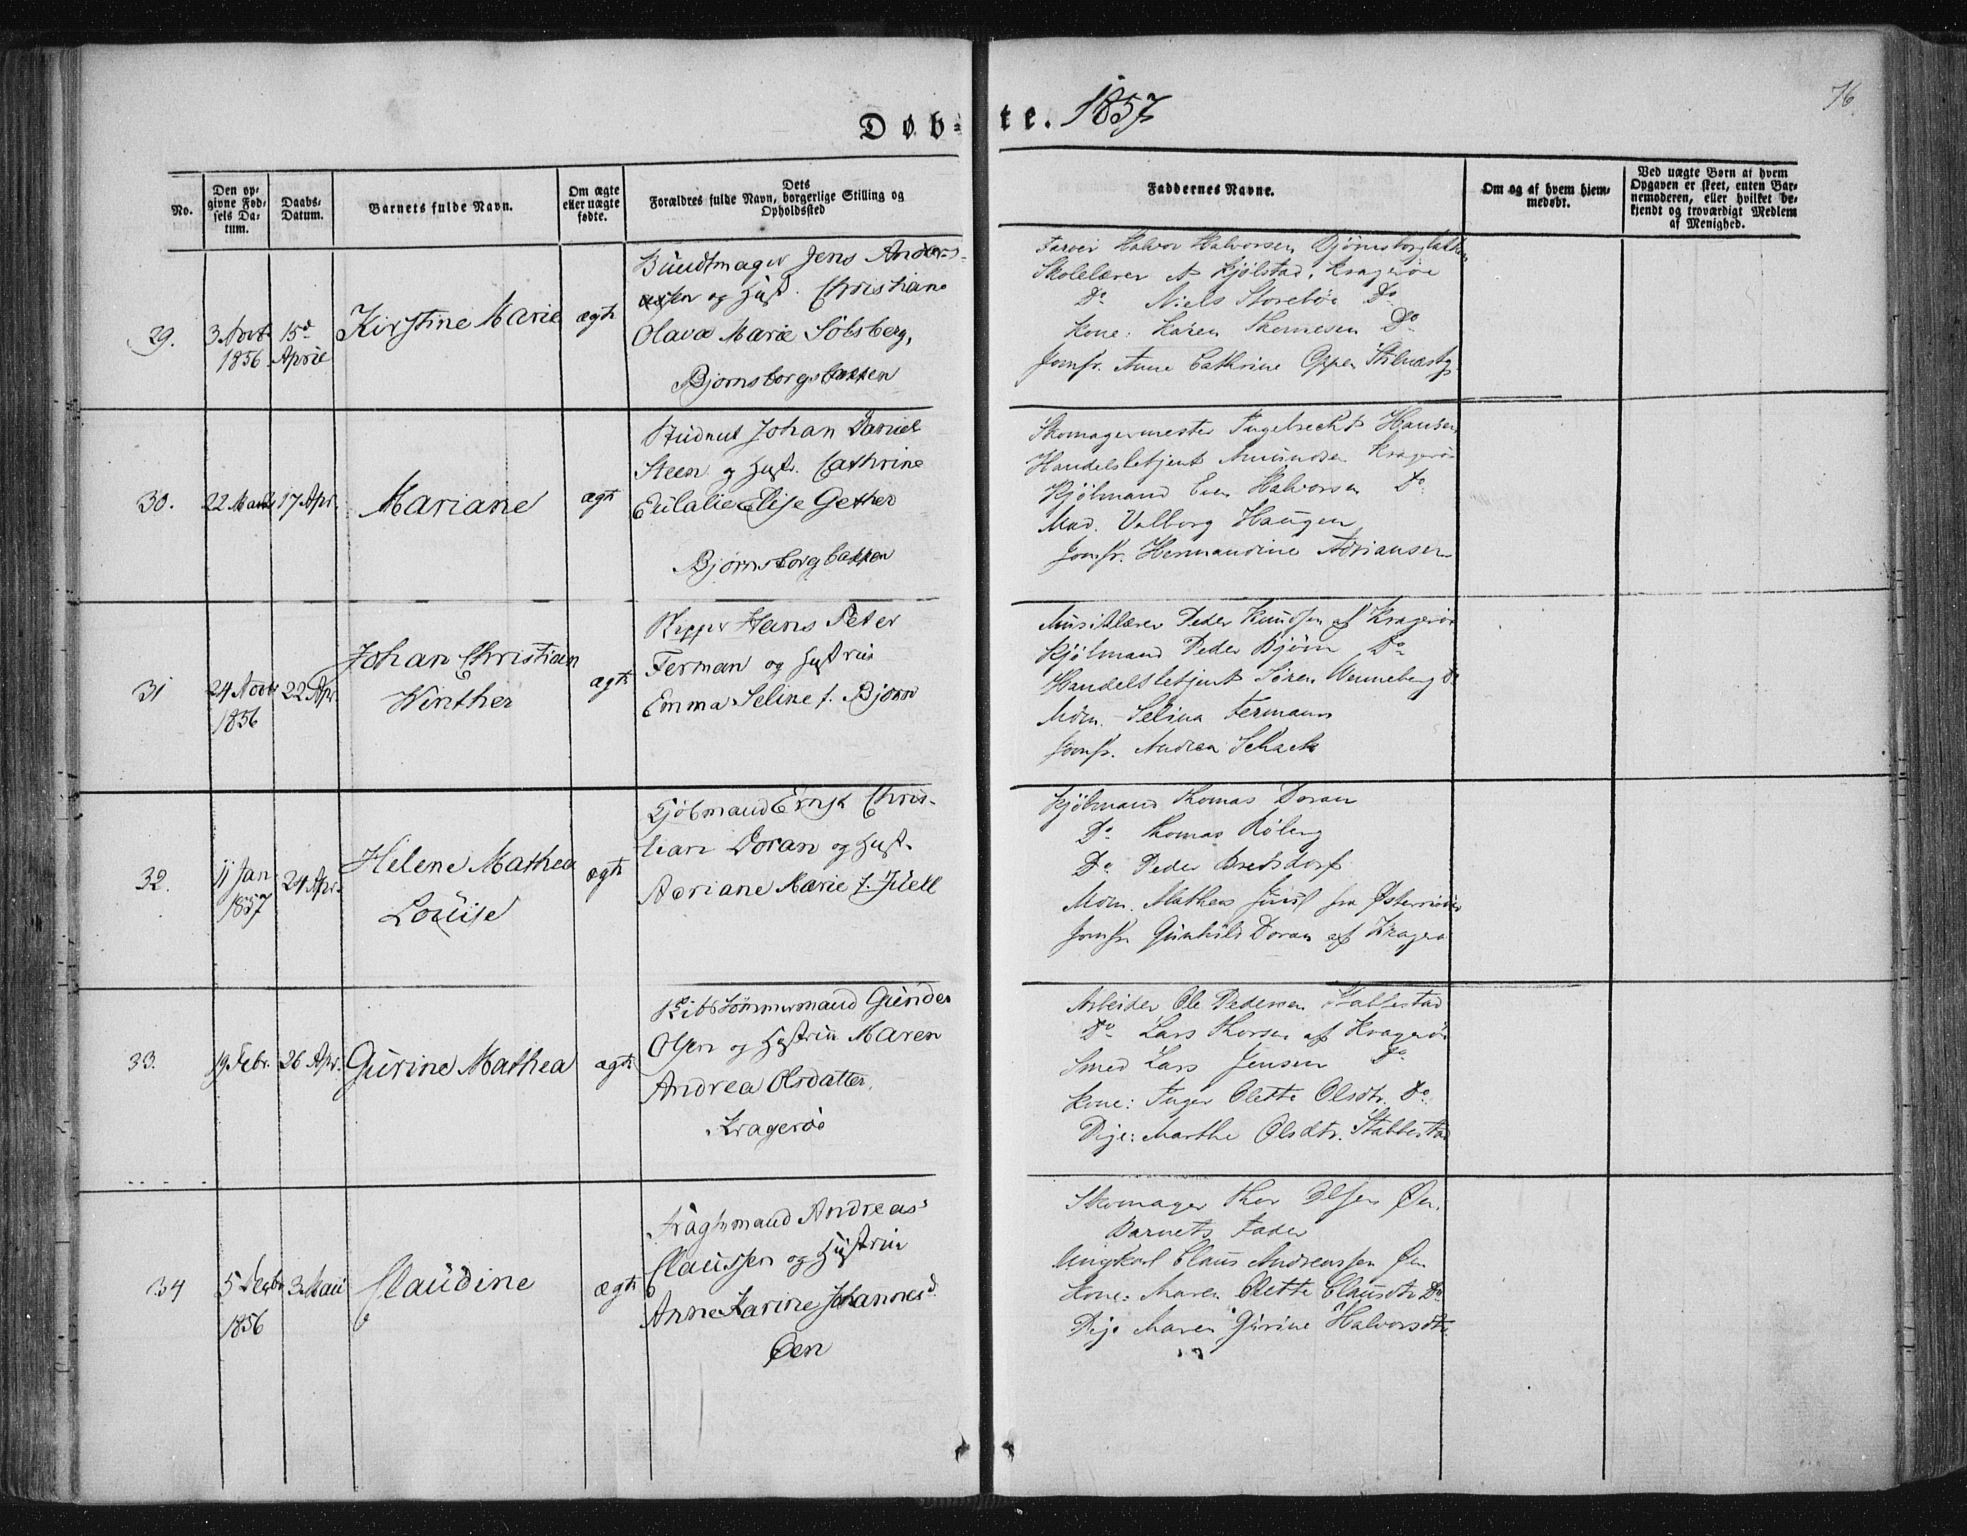 76.
Døb-te. 1857
No.
Den op-
givne Fød-
sels Da-
tum.
Daabs-
Datum.
Barnets fulde Navn.
Om ægte
eller uægte
fødte.
Dets
Forældres fulde Navn, borgerlige Stilling og
Opholdssted
Faddernes Navne.
Om og af hvem hjem-
medøbt.
Ved uægte Børn af hvem
Opgaven er skeet, enten Bar-
nemoderen, eller hvilket be-
kjendt og troværdigt Medlem
af Menighed.
29.
3 Novb.
1856
15d
April
Kirstine Marie
ægte
Bundtmager Jens Anders-
sen og Hust. Christiane
Olava Marie Solsberg,
Bjornsborgsbakken
Farver Halvor Halvorsen Bjørnsborgbakken
Skolelærer A Kjølstad, Kragerøe
Do Niels Storebøe Do
Kone: Karen Do
Jomfr. Anne Cathrine
30.
22 Marts
17 Apr.
Mariane
ægte
Johan Daniel
Steen og Hust. Cathrine
Eulalie Elise Gether
Bjørnsborgbakken
Skomagermester Ingebrecht Hansen
Handelsbetjent Amundsen Kragerø
Kjøbmand Even Halvorsen Do
Mad. Valborg Haugen
Jomfr. Hermandine Adriansen
31
24 Novb
1856
22 Apr.
Johan Christian
Winther
ægte
Skipper Hans Peter
Ferman og Hustrue
Emma Seline f. Bjørn
Musiklærer Peder Knudsen af Kragerø
Kjøbmand Peder Bjørn Do
Handelsbetjent Søren Wenneberg Do
Mdm. Selina Fermann
Jomfr. Andrea Schack
32.
11 Jan
1857
24 Apr.
Helene Mathea
Louise
ægte
Kjøbmand Ernst Chris-
tian Doran og Hust.
Adriane Marie f. Juell
Kjøbmand Thomas Doran
Do Thomas
Do Peder Bredsdorf
Mdm. Mathea Juul fra Østerriisøer
Jomfr. Gunhild Doran af Kragerø
33.
19 Febr.
26 Apr.
Gurine Mathea
ægte
Skibstømmermand Gunder
Olsen og Hustrue Maren
Andrea Olsdatter.
Kragerøe
Arbeider Ole Pedersen Stabbestad
Do Lars Thorsen af Kragerø
Smed Lars Jensen Do
Kone: Inger Olette Olsdtr. Do
Pige: Marthe Olsdtr. Stabbestad
34
5 Decbr
1856
3 Mai
Claudine
ægte
Fragtmand Andreas
Claussen og Hustrue
Anne Karine Johannesd.
Øen
Skomager Thor Olsen Øen.
Barnets Fader
Ungkarl Claus Andreassen Øen
Kone: Maren Olette Clausdtr. Do
Pige Maren Gurine Halvorsdtr